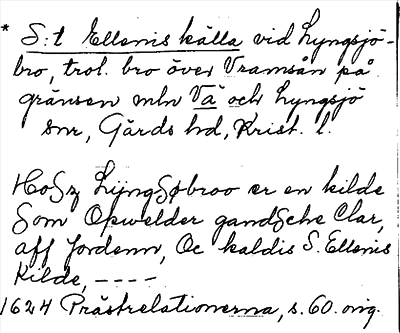 * S:t Ellenis källa vid Lyngsjö-
bro, trol. bro över Vramsån på
gränsen mln Vä och Lyngsjö
snr, Gärds hd, Krist. l.
HoSz LijngSøbroo er en kilde
Som Opwelder gandSche Clar,
aff Jordenn, Oc kaldis S. Ellenis
Kilde, ----
1624 Prästrelationerna, s. 60. orig.